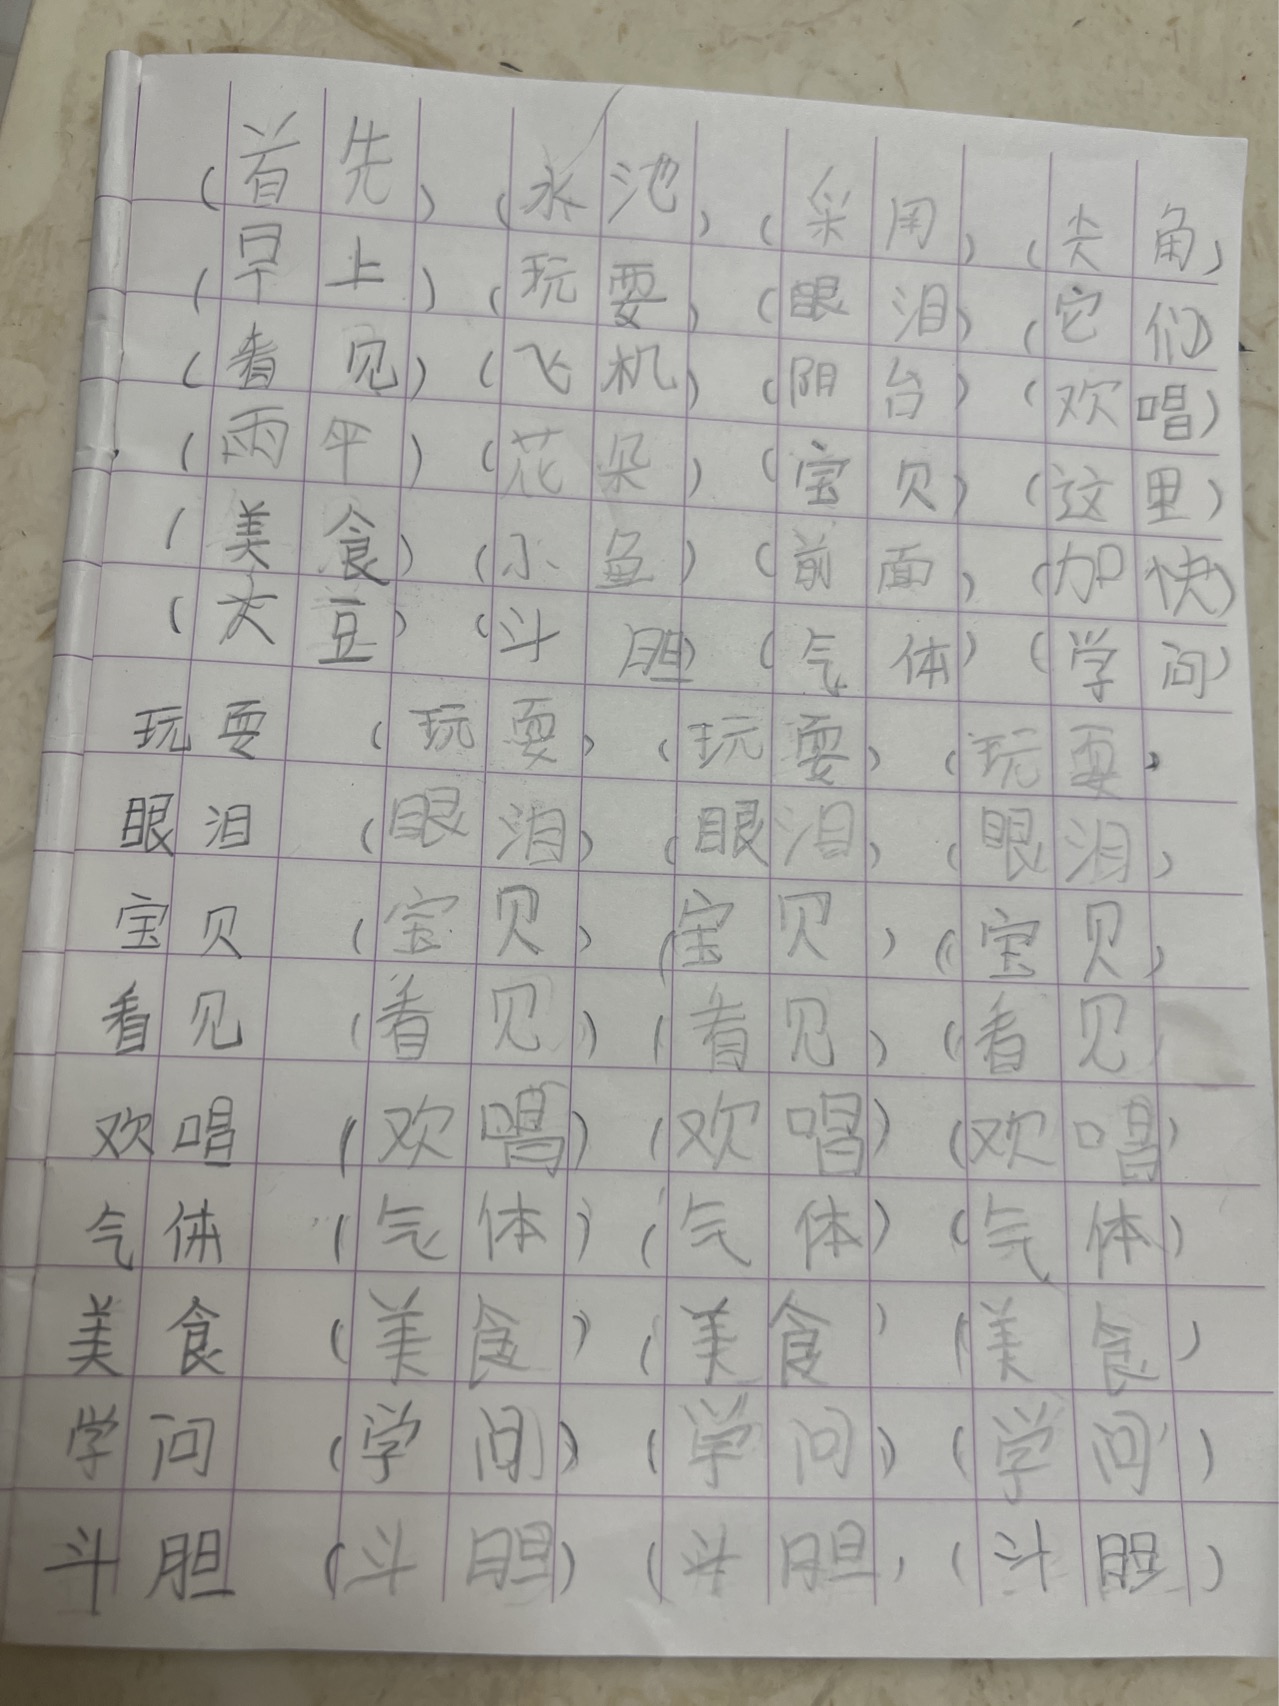 （首先）（水池）（采用）（尖角）
（早上）（玩耍）（眼泪）（它们）
（看见）（飞机）（阴台）（欢唱）
（雨平）（花朵）（宝贝）（这里）
（美食）（小鱼）（前面）（加快）
（大豆）（斗胆）（气体）（学问）
玩耍（玩耍）（玩耍）（玩耍）
眼泪（眼泪）（眼泪）（眼泪）
宝贝（宝贝）（宝贝）（宝贝）
看见（看见）（看见）（看见）
欢唱（欢唱）（欢唱）（欢唱）
气体（气体）（气体）（气体）
美食（美食）（美食）（美食）
学问（学问）（学问）（学问）
斗胆（斗胆）（斗胆）（斗胆）